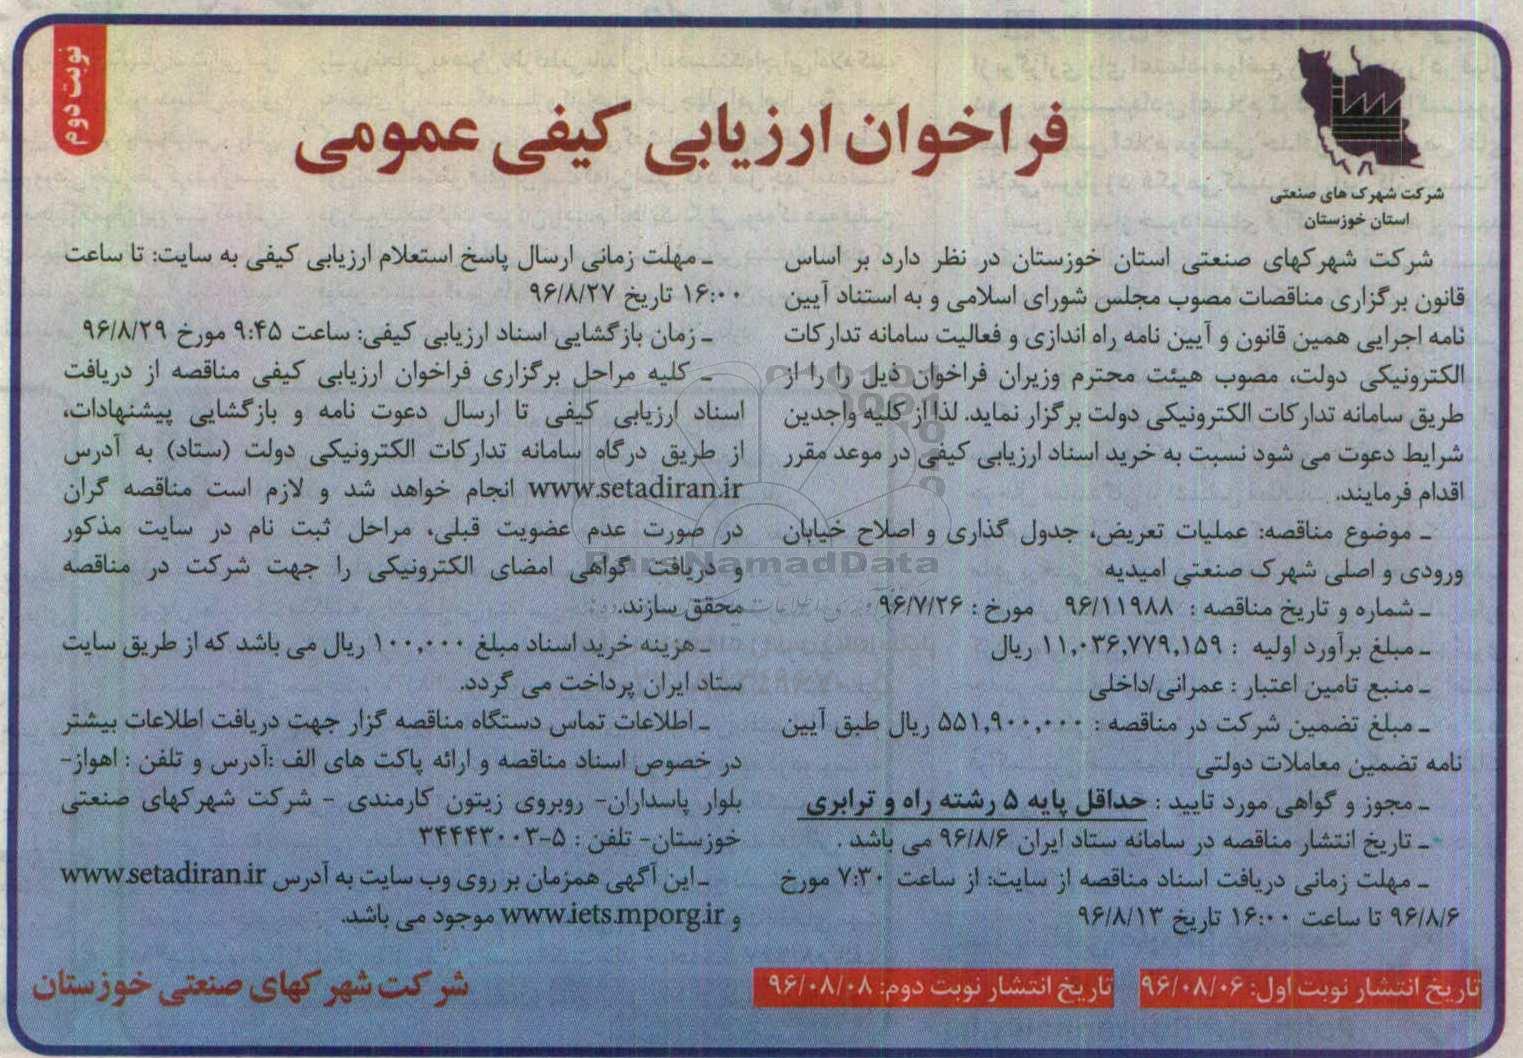 نوبت دوم
فراخوان ارزیابی کیفی عمومی
شرکت شهرک های صنعتی
استان خوزستان
شرکت شهرکهای صنعتی استان خوزستان در نظر دارد بر اساس
قانون برگزاری مناقصات مصوب مجلس شورای اسلامی و به استناد آیین
نامه اجرایی همین قانون و آیین نامه راه اندازی و فعالیت سامانه تدارکات
الکترونیکی دولت، مصوب هیئت محترم وزیران فراخوان ذیل را را از
طریق سامانه تدارکات الکترونیکی دولت برگزار نماید. لذا از کلیه واجدین
شرایط دعوت می شود نسبت به خرید اسناد ارزیابی کیفی در موعد مقرر
اقدام فرمایند.
ـ موضوع مناقصه: عملیات تعریض، جدول گذاری و اصلاح خیابان
ورودی و اصلی شهرک صنعتی امیدیه
ـ شماره و تاریخ مناقصه : ۹۶/۱۱۹۸۸ مورخ : ۹۶/۷/۲۶
ـ مبلغ برآورد اولیه : ۱۱,۰۳۶,۷۷۹,۱۵۹ ریال
ـ منبع تامین اعتبار : عمرانی/داخلی
ـ مبلغ تضمین شرکت در مناقصه : ۵۵۱,۹۰۰,۰۰۰ ریال طبق آیین
نامه تضمین معاملات دولتی
ـ مجوز و گواهی مورد تایید : حداقل پایه ۵ رشته راه و ترابری
ـ تاریخ انتشار مناقصه در سامانه ستاد ایران ۹۶/۸/۶ می باشد .
ـ مهلت زمانی دریافت اسناد مناقصه از سایت: از ساعت ۷:۳۰ مورخ
۹۶/۸/۶ تا ساعت ۱۶:۰۰ تاریخ ۹۶/۸/۱۳
ـ مهلت زمانی ارسال پاسخ استعلام ارزیابی کیفی به سایت: تا ساعت
۱۶:۰۰ تاریخ ۹۶/۸/۲۷
ـ زمان بازگشایی اسناد ارزیابی کیفی: ساعت ۹:۴۵ مورخ ۹۶/۸/۲۹
ـ کلیه مراحل برگزاری فراخوان ارزیابی کیفی مناقصه از دریافت
اسناد ارزیابی کیفی تا ارسال دعوت نامه و بازگشایی پیشنهادات،
از طریق درگاه سامانه تدارکات الکترونیکی دولت (ستاد) به آدرس
www.setadiran.ir انجام خواهد شد و لازم است مناقصه گران
در صورت عدم عضویت قبلی، مراحل ثبت نام در سایت مذکور
و دریافت گواهی امضای الکترونیکی را جهت شرکت در مناقصه
محقق سازند.
ـ هزینه خرید اسناد مبلغ ۱۰۰,۰۰۰ ریال می باشد که از طریق سایت
ستاد ایران پرداخت می گردد.
ـ اطلاعات تماس دستگاه مناقصه گزار جهت دریافت اطلاعات بیشتر
در خصوص اسناد مناقصه و ارائه پاکت های الف :آدرس و تلفن : اهواز-
بلوار پاسداران- روبروی زیتون کارمندی - شرکت شهرکهای صنعتی
خوزستان- تلفن : ۵-۳۴۴۴۳۰۰۳
ـ این آگهی همزمان بر روی وب سایت به آدرس www.setadiran.ir
و www.iets.mporg.ir موجود می باشد.
تاریخ انتشار نوبت اول: ۹۶/۰۸/۰۶
تاریخ انتشار نوبت دوم: ۹۶/۰۸/۰۸
شرکت شهرکهای صنعتی خوزستان
ParsNamadData